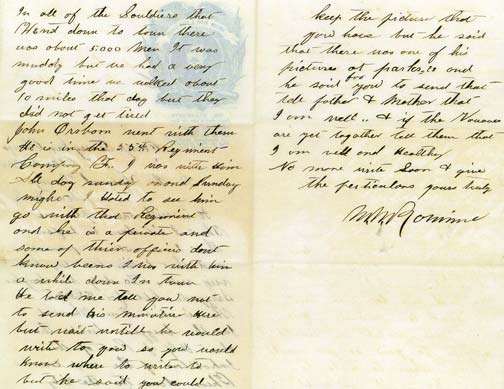 In all of the Souldiers that
Wend down to town there
was about 5000 Men It was
muddy but we had a very
good time we walked about
10 miles that day but they
did not get tired
John Orsborn went with them
He is in the 55th Regment
Company I was with Him
all day sunday and Sunday
night Hated to see him
go with that Regiment
and he is a private and
some of thier officers dont
know beens I was with him
a while down In town
He told me tell you not
to send his miniture Here
but wait untille he would
write to you so you would
know where to write to
but he said you could
keep the picture that
you have but he said
that there was one of his
pictures at and
he said for you to send that
tell father & Mother that
I am well & if the
are yet together tell them that
I am well and Healthy
No more write Soon & give
the perticulars yours truly
Romine